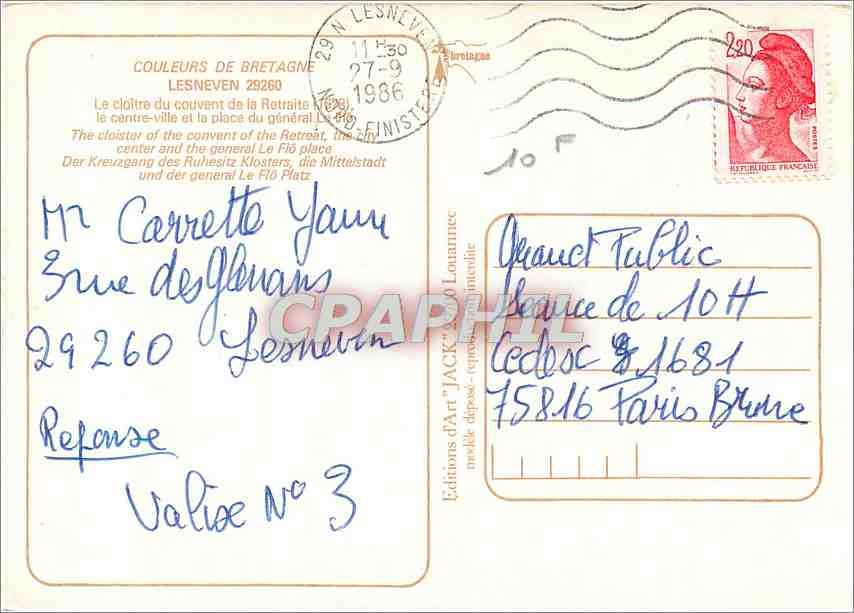 COULEURS DE BRETAGNE
LESNEVEN 29260
Le cloître du couvent de la Retraite
le centre-ville et la place du général Le Flô
The cloister of the convent of the Retreat, the city
center and the general Le Flô place
Der Kreuzgang des Ruhesitz Klosters, die Mittelstadt
und der general Le Flô Platz
29 N LESNEVEN
11 H 30
27-9
1986
NORD-FINISTERE
bretagne
2,20
POSTES
REPUBLIQUE FRANÇAISE
10 F
Mr Carrette Yann
3 rue des Glénans
29260 Lesneven
Reponse
Valise N° 3
CPAPHIL
Editions d'Art "JACK" Louannec
modèle déposé - reproduction interdite
Grand Public
Seance de 10H
Cedesc 1681
75816 Paris Brune